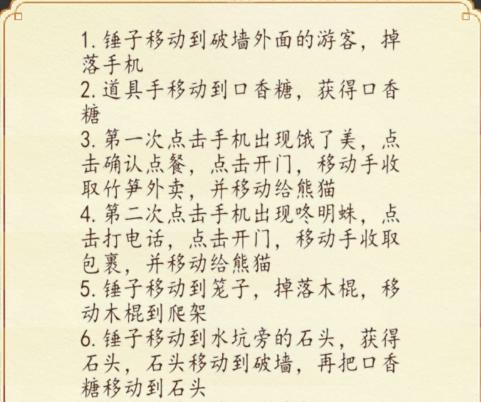 1.锤子移动到破墙外面的游客，掉
落手机
2.道具手移动到口香糖，获得口香
糖
3.第一次点击手机出现饿了美，点
击确认点餐，点击开门，移动手收
取竹笋外卖，并移动给熊猫
4.第二次点击手机出现咚明蛛，点
击打电话，点击开门，移动手收取
包裹，并移动给熊猫
5.锤子移动到笼子，掉落木棍，移
动木棍到爬架
6.锤子移动到水坑旁的石头，获得
石头，石头移动到破墙，再把口香
糖移动到石头